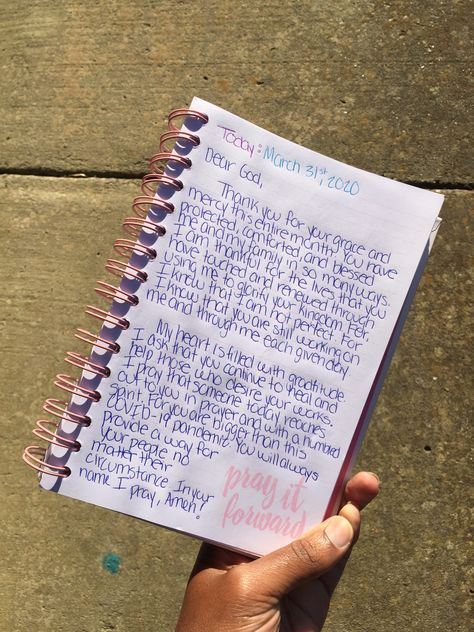 Today: March 31st, 2020
Dear God,
Thank you for your grace and
mercy this entire month. You have
protected, comforted and blessed
me and my family in so many ways.
I am thankful for the lives that you
have touched and renewed through
using me to glorify your kingdom. For,
I know that I am not perfect. For
I know that you are still working on
me and through me each given day.
My heart is filled with gratitude.
I ask that you continue to heal and
help those who desire your works.
I pray that someone today reaches
out to you in prayer and with a
spirit. For you are bigger than this
COVID-19 pandemic. You will always
provide a way for
your people no
matter their
circumstance. In your
name I pray, Amen!
pray it
forward